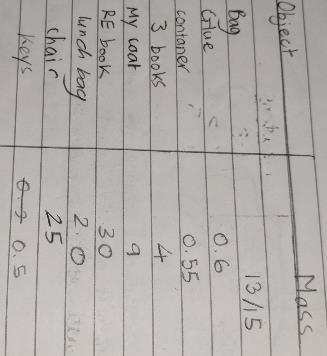 Object Mass
Bag 13/15
Glue 0.6
contaner 0.55
3 books 4
My coat 9
RE book 30
lunch bag 2.0
chair 25
keys 0.5